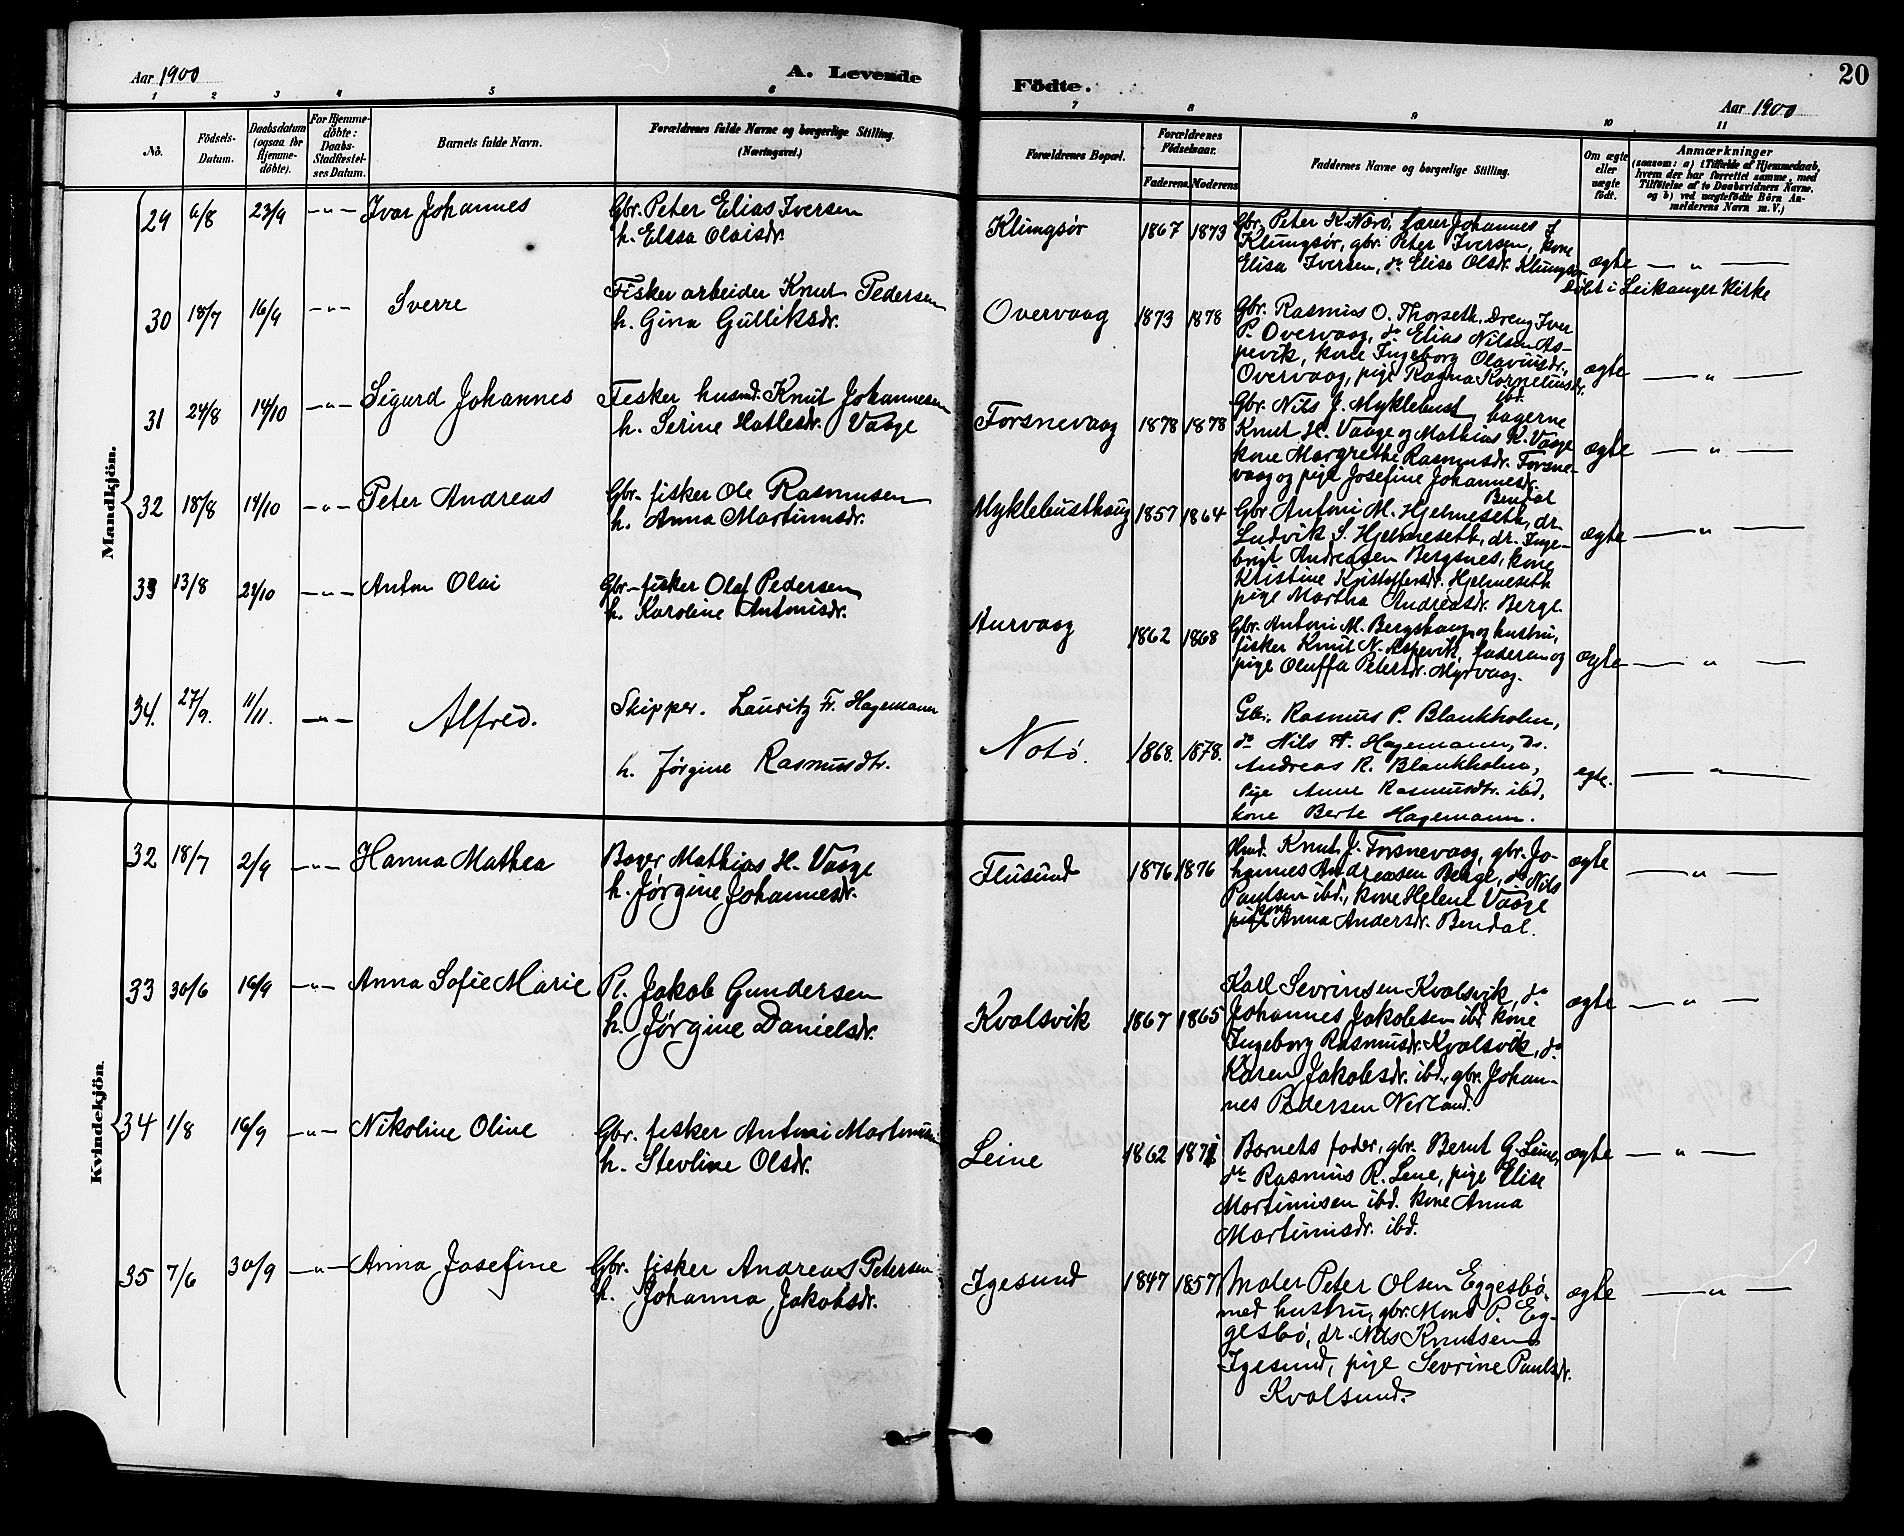 Aar 1900
A. Levende
Födte.
20
Aar 1900
1 2 3 4 5 6 7 8 9 10 11
No.
Födsels-
Datum.
Daabsdatum
(ogsaa for
Hjemme-
döbte).
For Hjemme-
döbte:
Daabs-
Stadfæstel-
ses Datum.
Barnets fulde Navn.
Forældrenes fulde Navne og borgerlige Stilling.
(Næringsvei.)
Forældrenes Bopæl.
Forældrenes
Födselsaar.
Faderens. Moderens
Faddernes Navne og borgerlige Stilling.
Om ægte
eller
uægte
födt.
Anmærkninger
(saasom: a) i Tilfælde af Hjemmedaab,
hvem der har forrettet samme, med
Tilföielse af to Daabsvidners Navne.
og b) ved uægtefödte Börn An-
melderens Navn m. V.)
Mandkjön.
29 6/8 23/9 -„- Ivar Johannes
Gbr. Peter Elias Iversen
h. Elisa Olaisdr.
Klungsør 1867 1873
Gbr. Peter K. Nærø, lærer Johannes J
Klungsør, gbr. Peter Iversen, kone
Elisa Iversen, do Elise Olsdr. Klungsør
ægte — „ —
Döbt i Leikanger kirke
30 18/7 16/9 -„- Sverre
Fisker arbeider Knut Pedersen
h. Gina Gulliksdr.
Overvaag 1873 1878
Gbr. Rasmus O. Thorseth, Dreng Iver
P. Overvaag, do Elias Nilsen As-
pevik, kone Ingeborg Olaviusdr.,
Overvaag, pige Ragna Korneliusdr.
ibd.
ægte — „ —
31 24/8 14/10 -„- Sigurd Johannes
Fisker husmd. Knut Johannesen
h. Serine Hatlesdr. Vaage
Forsnevaag 1878 1878
Gbr. Nils J. Myklebust, bagerne
Knut H. Vaage og Mathias K. Vaage
kone Margrethe Rasmusdr. Forsne-
vaag og pige Josefine Johannesdr.
Bendal
ægte — „ —
32 18/8 14/10 -„- Peter Andreas
Gbr. fisker Ole Rasmusen
h. Anna Martinusdr.
Myklebusthaug 1857 1864
Gbr Antoni M. Hjelmeseth, dr.
Ludvik S. Hjelmeseth, dr. Inge-
brigt Andreasen Bergsnes, kone
Kristine Kristoffersdr. Hjelmeseth
pige Martha Andreasdr. Berge
ægte — „ —
33 13/8 21/10 -„- Anton Olai
Gbr-fisker Olaf Pedersen
h. Karoline Antonisdr.
Aurvaag 1862 1868
Gbr. Antoni M. Bergshaug og hustru,
fisker Knut N. Aspevik, faderen og
pige Oluffa Petersdr. Myrvaag.
ægte — „ —
34. 27/9. 11/11. -„- Alfred.
Skipper. Lauritz Fr. Hagemann
h. Jørgine Rasmusdtr.
Notø. 1868. 1878.
Gbr. Rasmus P. Blankholm,
do Nils A. Hagemann, do.
Andreas R. Blankholm,
Pige Anne Rasmusdtr. ibd,
kone Berte Hagemann.
egte. — „ —
Kvindekjön.
32 18/7 2/9 -„- Hanna Mathea
Bager Mathias H. Vaage
h. Jørgine Johannesdr.
Flusund 1876 1876
Hmd. Knut J. Forsnevaag, gbr. Jo-
hannes Andreasen Berge, do Nils
Paulsen ibd., kone Helene Vaage
kone
pige Anna Andersdr. Bendal.
ægte — „ —
33 30/6 16/9 -„- Anna Sofie Marie
Pl. Jakob Gundersen
h. Jørgine Danielsdr.
Kvalsvik 1867 1865
Karl Sevrinsen Kvalsvik, do
Johannes Jakobsen ibd. kone
Ingeborg Rasmusdr. Kvalsvik, do
Karen Jakobsdr. ibd., gbr. Johan-
nes Pedersen Nerland.
ægte — „ —
34 1/8 16/9 -„- Nikoline Oline
Gbr. fisker Antoni Martinusen
h. Stevline Olsdr.
Leine 1862 1871
Barnets fader, gbr. Bernt G. Leine,
do Rasmus R. Leine, pige Elise
Martinusen ibd. kone Anna
Martinusdr. ibd.
ægte — „ —
35 7/6 30/9 -„- Anna Josefine
Gbr. fisker Andreas Petersen
h. Johanna Jakobsdr.
Igesund 1847 1857
Maler Peter Olsen Eggesbø.
med hustru, gbr. Mons P. Eg-
gesbø, dr. Nils Knutsen
Igesund, pige Sevrine Paulsdr.
Kvalsund.
ægte — „ —